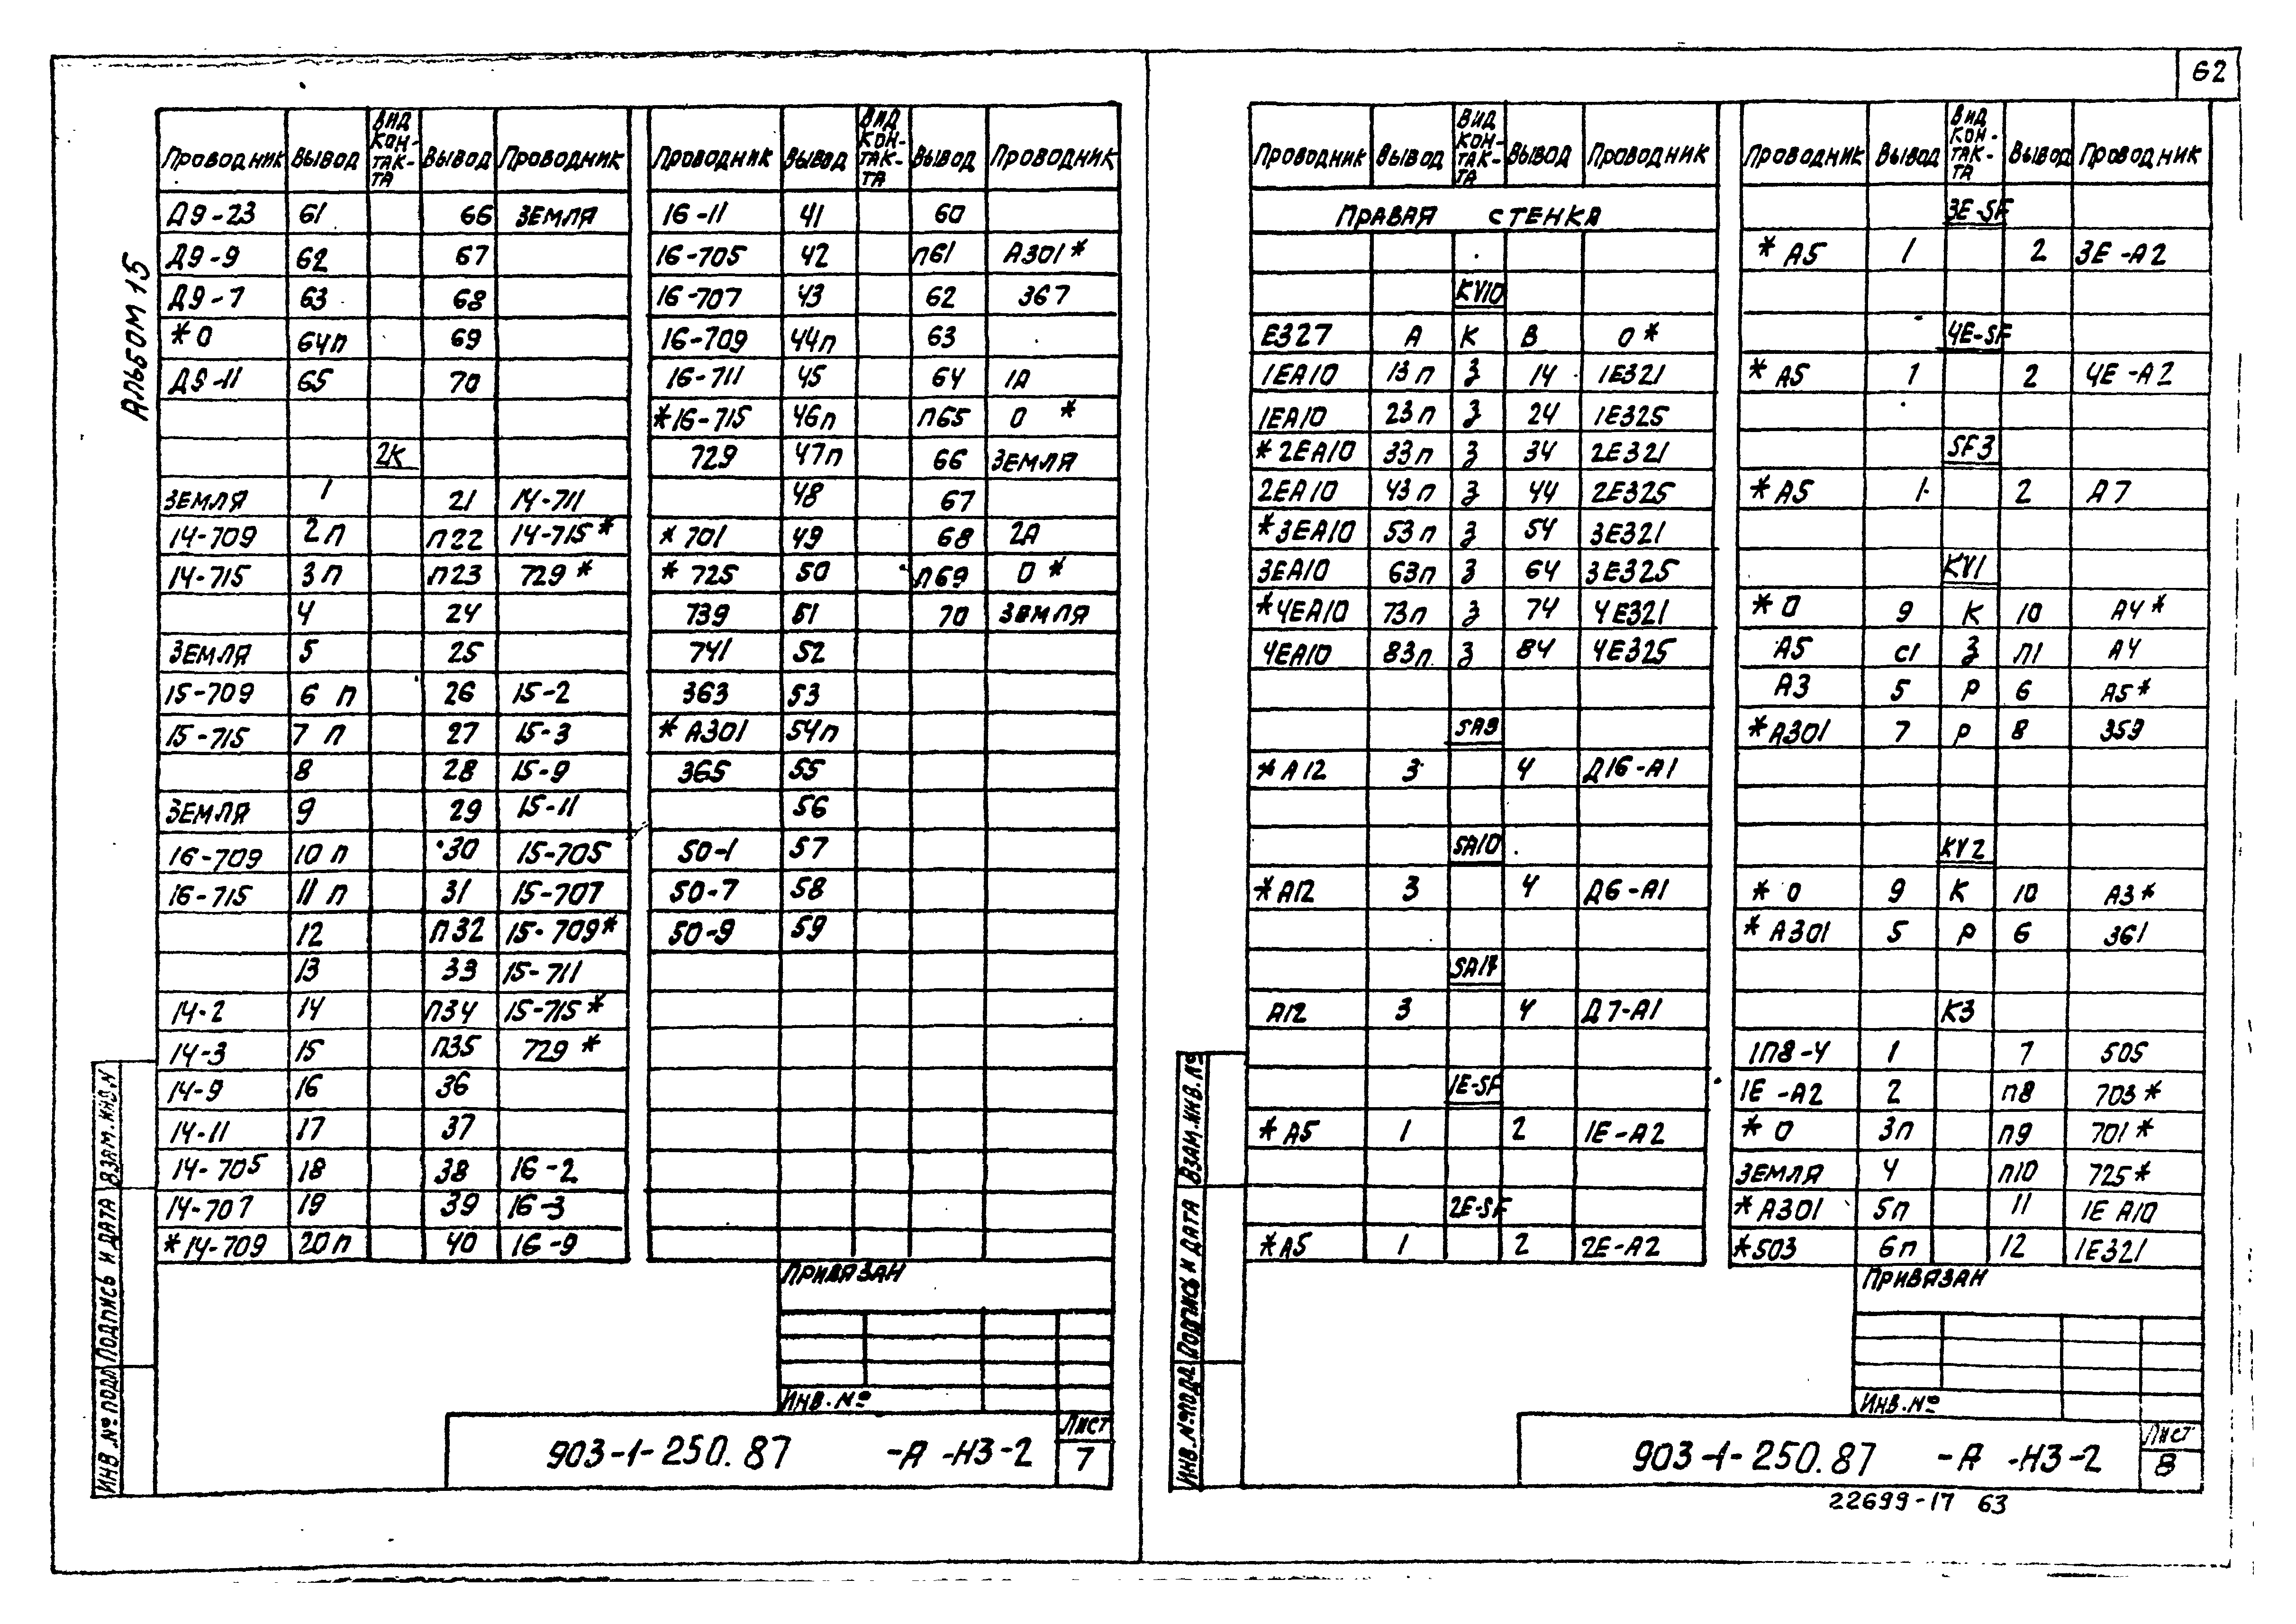 62
АЛЬБОМ 15
Проводник Вывод ВИД КОН-ТАК-ТА Вывод Проводник
Д9-23 61 66 ЗЕМЛЯ
Д9-9 62 67
Д9-7 63 68
*0 64п 69
Д9-11 65 70
2К
ЗЕМЛЯ 1 21 14-711
14-709 2п п22 14-715*
14-715 3п п23 729*
4 24
ЗЕМЛЯ 5 25
15-709 6 п 26 15-2
15-715 7 п 27 15-3
8 28 15-9
ЗЕМЛЯ 9 29 15-11
16-709 10 п 30 15-705
16-715 11 п 31 15-707
12 п32 15-709*
13 33 15-711
14-2 14 п34 15-715*
14-3 15 п35 729*
14-9 16 36
14-11 17 37
14-705 18 38 16-2
14-707 19 39 16-3
*14-709 20п 40 16-9
Проводник Вывод ВИД КОН-ТАК-ТА Вывод Проводник
16-11 41 60
16-705 42 п61 А301*
16-707 43 62 367
16-709 44п 63
16-711 45 64 1А
*16-715 46п п65 0 *
729 47п 66 ЗЕМЛЯ
48 67
*701 49 68 2А
*725 50 п69 0*
739 51 70 ЗЕМЛЯ
741 52
363 53
*А301 54п
365 55
56
50-1 57
50-7 58
50-9 59
ПРИВЯЗАН
ИНВ.№
903-1-250.87 -А -НЗ-2
ЛИСТ
7
ИНВ.№ПОДЛ ПОДПИСЬ И ДАТА ВЗАМ.ИНВ.N
Проводник Вывод ВИД КОН-ТАК-ТА Вывод Проводник
ПРАВАЯ СТЕНКА
KV10
Е327 А К В 0*
1ЕА10 13п З 14 1Е321
1ЕА10 23п З 24 1Е325
*2ЕА10 33п З 34 2Е321
2ЕА10 43п З 44 2Е325
*3ЕА10 53п З 54 3Е321
3ЕА10 63п З 64 3Е325
*4ЕА10 73п З 74 4Е321
4ЕА10 83п З 84 4Е325
SA9
*А12 3 4 Д16-А1
SA10
*А12 3 4 Д6-А1
SA17
А12 3 4 Д7-А1
1E-SF
*А5 1 2 1Е-А2
2E-SF
*А5 1 2 2Е-А2
Проводник Вывод ВИД КОН-ТАК-ТА Вывод Проводник
3E-SF
*А5 1 2 3Е-А2
4E-SF
*А5 1 2 4Е-А2
SF3
*А5 1 2 А7
KV1
*0 9 К 10 А4*
А5 с1 З п1 А4
А3 5 Р 6 А5*
*А301 7 Р 8 359
KV2
*0 9 К 10 А3*
*А301 5 Р 6 361
К3
1П8-4 1 7 505
1Е-А2 2 п8 703*
*0 3п п9 701*
ЗЕМЛЯ 4 п10 725*
*А301 5п 11 1Е А10
*503 6п 12 1Е321
ПРИВЯЗАН
ИНВ.№
903-1-250.87 -А -НЗ-2
ЛИСТ
8
ИНВ.№ПОДЛ ПОДПИСЬ И ДАТА ВЗАМ.ИНВ.№
22699-17 63